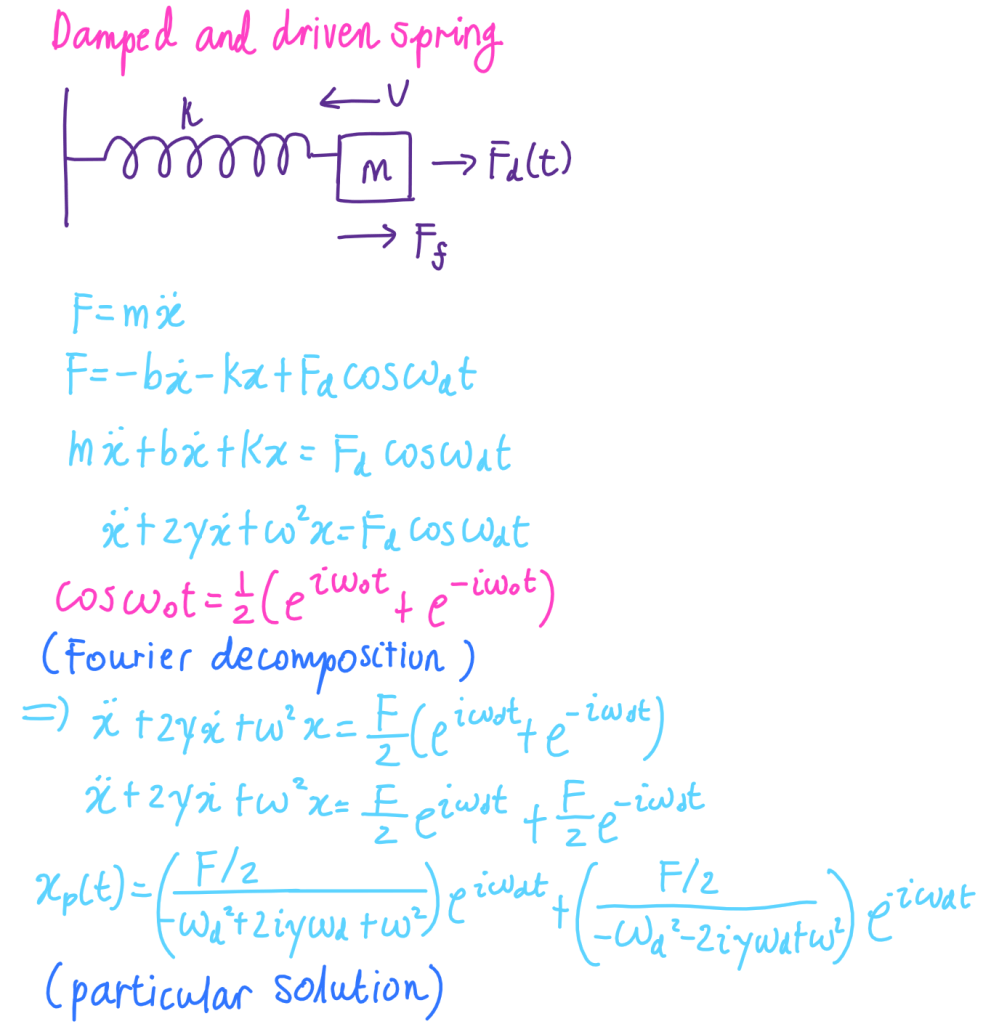 Damped and driven spring
k ← v
m → F_d(t)
→ F_f
F=mẍ
F=-bẋ-kx+F_d cosω_dt
mẍ+bẋ+kx=F_d cosω_dt
ẍ+2γẋ+ω²x=F_d cosω_dt
cosω₀t=½(e^{iω₀t}+e^{-iω₀t})
(Fourier decomposition)
⇒ ẍ+2γẋ+ω²x=F/2(e^{iω_dt}+e^{-iω_dt})
ẍ+2γẋ+ω²x=F/2 e^{iω_dt}+F/2 e^{-iω_dt}
x_p(t)=((F/2)/(-ω_d²+2iγω_d+ω²))e^{iω_dt}+((F/2)/(-ω_d²-2iγω_d+ω²))e^{iω_dt}
(particular solution)